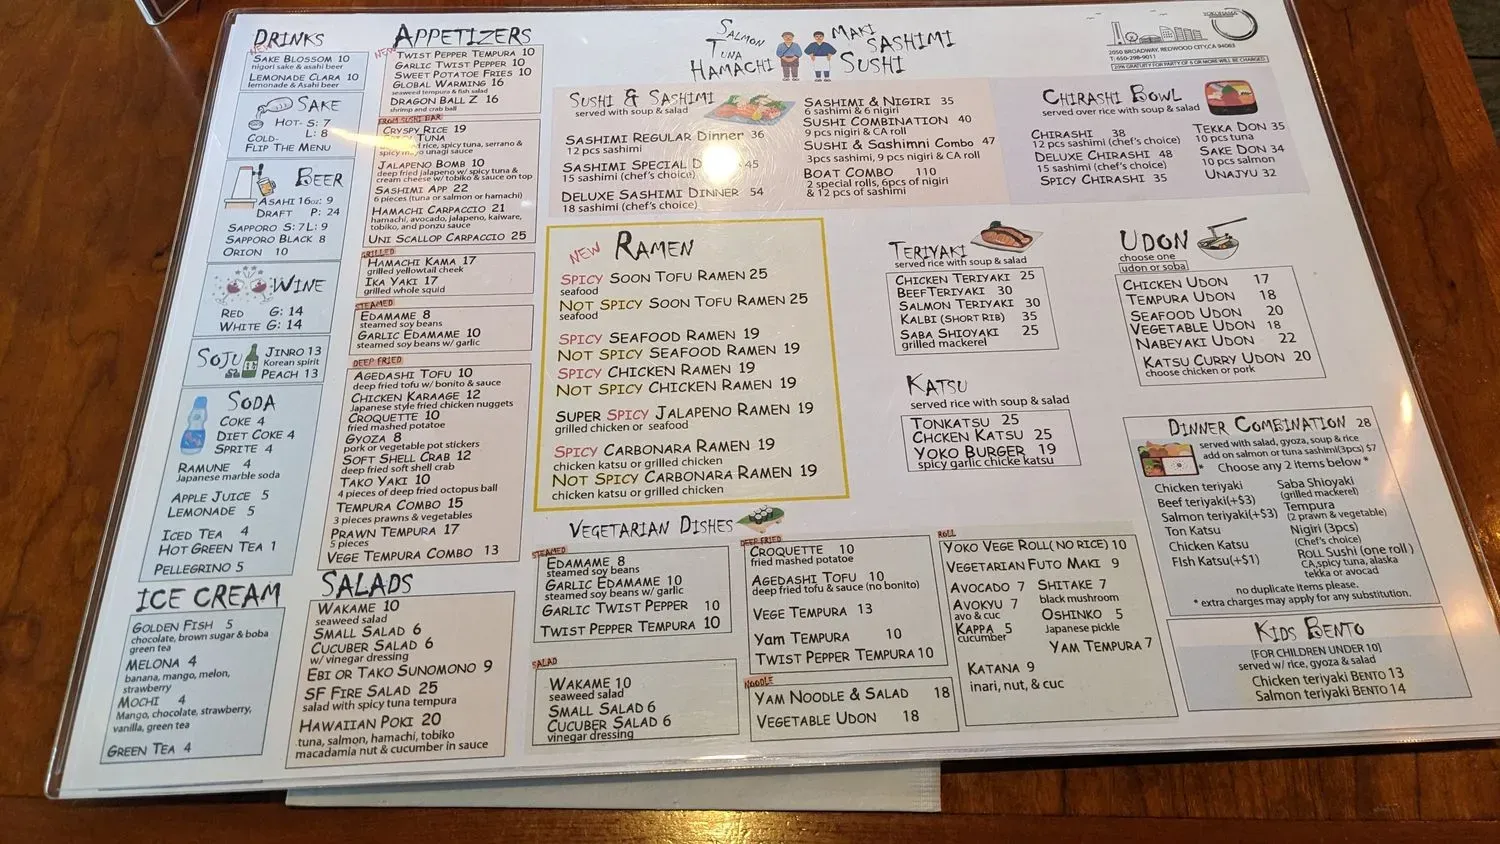 DRINKS
NEW
SAKE BLOSSOM 10
nigori sake & asahi beer
LEMONADE CLARA 10
lemonade & Asahi beer
SAKE
HOT- S: 7
L: 8
COLD-
FLIP THE MENU
BEER
ASAHI 16oz: 9
DRAFT P: 24
SAPPORO S: 7 L: 9
SAPPORO BLACK 8
ORION 10
WINE
RED G: 14
WHITE G: 14
SOJU
JINRO 13
Korean spirit
PEACH 13
SODA
COKE 4
DIET COKE 4
SPRITE 4
RAMUNE 4
Japanese marble soda
APPLE JUICE 5
LEMONADE 5
ICED TEA 4
HOT GREEN TEA 1
PELLEGRINO 5
ICE CREAM
GOLDEN FISH 5
chocolate, brown sugar & boba
green tea
MELONA 4
banana, mango, melon,
strawberry
MOCHI 4
Mango, chocolate, strawberry,
vanilla, green tea
GREEN TEA 4
APPETIZERS
NEW
TWIST PEPPER TEMPURA 10
GARLIC TWIST PEPPER 10
SWEET POTATOE FRIES 10
GLOBAL WARMING 16
seaweed tempura & fish salad
DRAGON BALL Z 16
shrimp and crab ball
FROM SUSHI BAR
CRYSPY RICE 19
TUNA
rice, spicy tuna, serrano &
spicy mayo unagi sauce
JALAPENO BOMB 10
deep fried jalapeno w/ spicy tuna &
cream cheese w/ tobiko & sauce on top
SASHIMI APP 22
6 pieces (tuna or salmon or hamachi)
HAMACHI CARPACCIO 21
hamachi, avocado, jalapeno, kaiware,
tobiko, and ponzu sauce
UNI SCALLOP CARPACCIO 25
GRILLED
HAMACHI KAMA 17
grilled yellowtail cheek
IKA YAKI 17
grilled whole squid
STEAMED
EDAMAME 8
steamed soy beans
GARLIC EDAMAME 10
steamed soy beans w/ garlic
DEEP FRIED
AGEDASHI TOFU 10
deep fried tofu w/ bonito & sauce
CHICKEN KARAAGE 12
Japanese style fried chicken nuggets
CROQUETTE 10
fried mashed potatoe
GYOZA 8
pork or vegetable pot stickers
SOFT SHELL CRAB 12
deep fried soft shell crab
TAKO YAKI 10
4 pieces of deep fried octopus ball
TEMPURA COMBO 15
3 pieces prawns & vegetables
PRAWN TEMPURA 17
5 pieces
VEGE TEMPURA COMBO 13
SALADS
WAKAME 10
seaweed salad
SMALL SALAD 6
CUCUBER SALAD 6
w/ vinegar dressing
EBI OR TAKO SUNOMONO 9
SF FIRE SALAD 25
salad with spicy tuna tempura
HAWAIIAN POKI 20
tuna, salmon, hamachi, tobiko
macadamia nut & cucumber in sauce
SALMON
TUNA
HAMACHI
MAKI
SASHIMI
SUSHI
YOKOHAMA
2050 BROADWAY, REDWOOD CITY, CA 94063
T: 650-298-9011
20% GRATUITY FOR PARTY OF 6 OR MORE WILL BE CHARGED
SUSHI & SASHIMI
served with soup & salad
SASHIMI REGULAR Dinner 36
12 pcs sashimi
SASHIMI SPECIAL 45
15 sashimi (chef's choice)
DELUXE SASHIMI DINNER 54
18 sashimi (chef's choice)
SASHIMI & NIGIRI 35
6 sashimi & 6 nigiri
SUSHI COMBINATION 40
9 pcs nigiri & CA roll
SUSHI & Sashimni Combo 47
3pcs sashimi, 9 pcs nigiri & CA roll
BOAT COMBO 110
2 special rolls, 6pcs of nigiri
& 12 pcs of sashimi
CHIRASHI BOWL
served over rice with soup & salad
CHIRASHI 38
12 pcs sashimi (chef's choice)
DELUXE CHIRASHI 48
15 sashimi (chef's choice)
SPICY CHIRASHI 35
TEKKA DON 35
10 pcs tuna
SAKE DON 34
10 pcs salmon
UNAJYU 32
NEW RAMEN
SPICY SOON TOFU RAMEN 25
seafood
NOT SPICY SOON TOFU RAMEN 25
seafood
SPICY SEAFOOD RAMEN 19
NOT SPICY SEAFOOD RAMEN 19
SPICY CHICKEN RAMEN 19
NOT SPICY CHICKEN RAMEN 19
SUPER SPICY JALAPENO RAMEN 19
grilled chicken or seafood
SPICY CARBONARA RAMEN 19
chicken katsu or grilled chicken
NOT SPICY CARBONARA RAMEN 19
chicken katsu or grilled chicken
TERIYAKI
served rice with soup & salad
CHICKEN TERIYAKI 25
BEEF TERIYAKI 30
SALMON TERIYAKI 30
KALBI (SHORT RIB) 35
SABA SHIOYAKI 25
grilled mackerel
KATSU
served rice with soup & salad
TONKATSU 25
CHCKEN KATSU 25
YOKO BURGER 19
spicy garlic chicke katsu
UDON
choose one
udon or soba
CHICKEN UDON 17
TEMPURA UDON 18
SEAFOOD UDON 20
VEGETABLE UDON 18
NABEYAKI UDON 22
KATSU CURRY UDON 20
choose chicken or pork
DINNER COMBINATION 28
served with salad, gyoza, soup & rice
add on salmon or tuna sashimi(3pcs) $7
* Choose any 2 items below *
Chicken teriyaki
Beef teriyaki(+$3)
Salmon teriyaki(+$3)
Ton Katsu
Chicken Katsu
FIsh Katsu(+$1)
Saba Shioyaki
(grilled mackerel)
Tempura
(2 prawn & vegetable)
Nigiri (3pcs)
(Chef's choice)
ROLL Sushi (one roll )
CA,spicy tuna, alaska
tekka or avocad
no duplicate items please.
* extra charges may apply for any substitution.
KIDS BENTO
[FOR CHILDREN UNDER 10]
served w/ rice, gyoza & salad
Chicken teriyaki BENTO 13
Salmon teriyaki BENTO 14
VEGETARIAN DISHES
STEAMED
EDAMAME 8
steamed soy beans
GARLIC EDAMAME 10
steamed soy beans w/ garlic
GARLIC TWIST PEPPER 10
TWIST PEPPER TEMPURA 10
SALAD
WAKAME 10
seaweed salad
SMALL SALAD 6
CUCUBER SALAD 6
vinegar dressing
DEEP FRIED
CROQUETTE 10
fried mashed potatoe
AGEDASHI TOFU 10
deep fried tofu & sauce (no bonito)
VEGE TEMPURA 13
Yam TEMPURA 10
TWIST PEPPER TEMPURA 10
NOODLE
YAM NOODLE & SALAD 18
VEGETABLE UDON 18
ROLL
YOKO VEGE ROLL( NO RICE) 10
VEGETARIAN FUTO MAKI 9
AVOCADO 7
AVOKYU 7
avo & cuc
KAPPA 5
cucumber
SHITAKE 7
black mushroom
OSHINKO 5
Japanese pickle
YAM TEMPURA 7
KATANA 9
inari, nut, & cuc